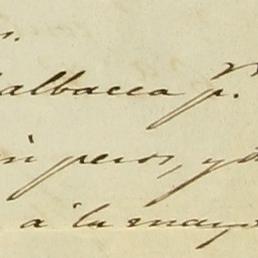 albacea p.
pesos, y
a la may